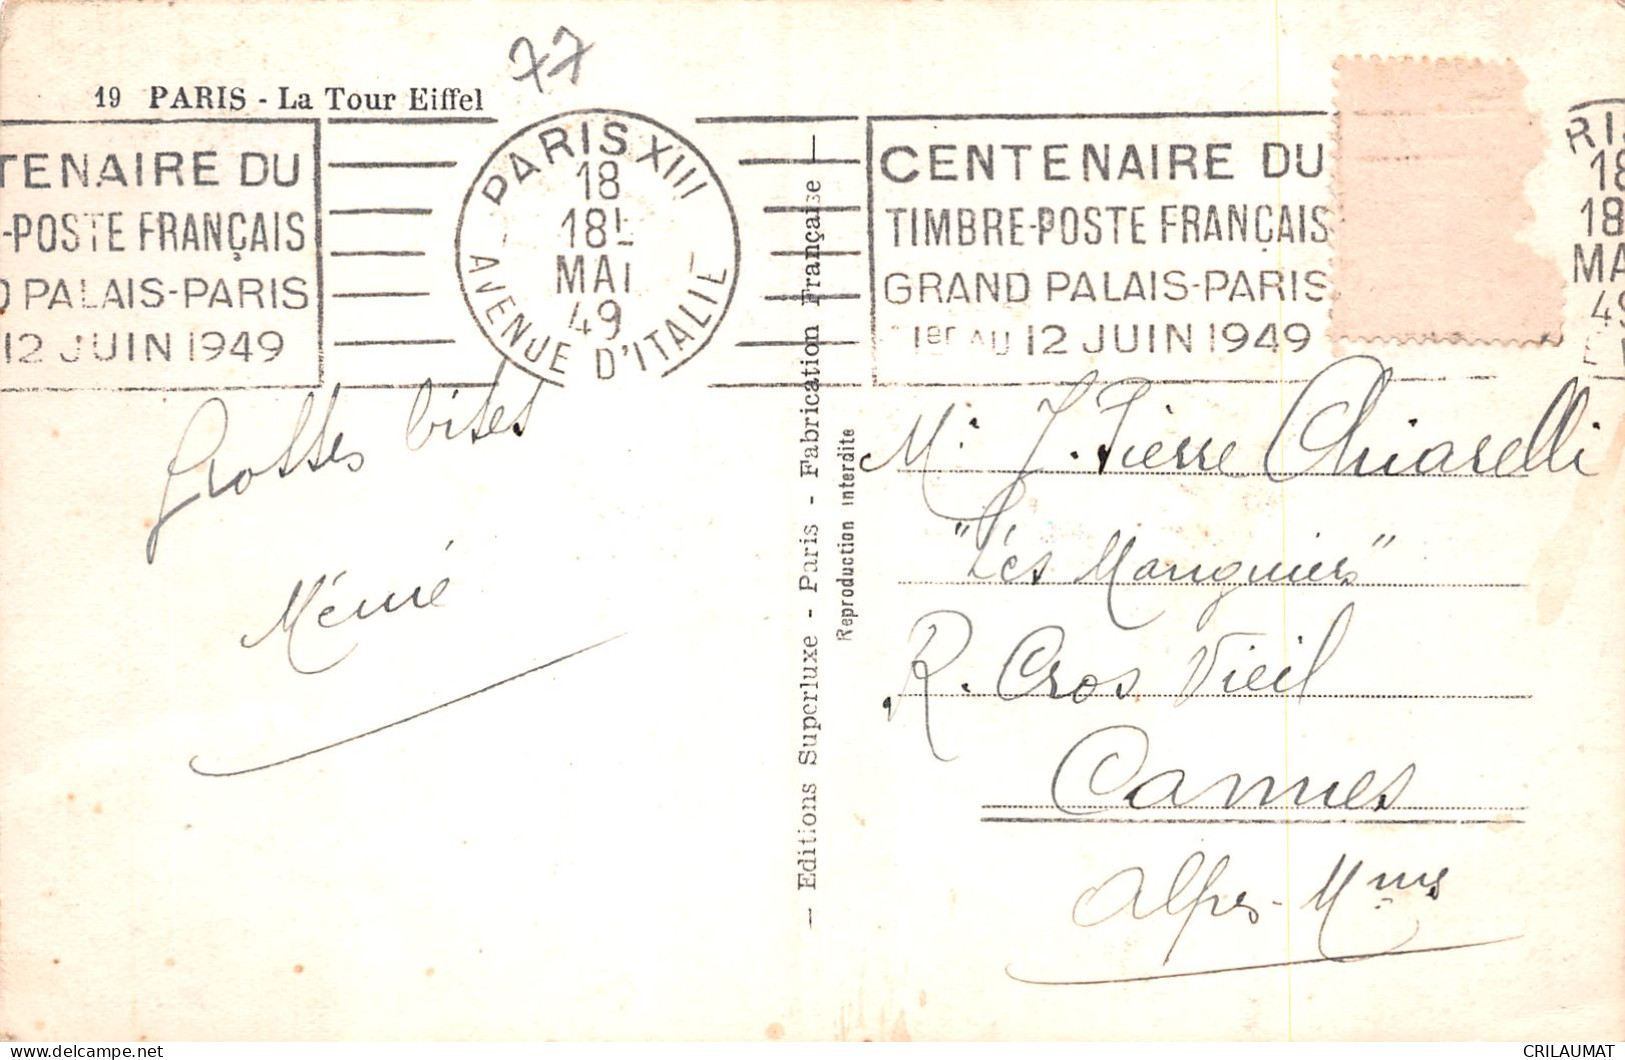 77
19 PARIS - La Tour Eiffel
TENAIRE DU
-POSTE FRANÇAIS
PALAIS-PARIS
12 JUIN 1949
PARIS XIII
18
18
MAI
49
AVENUE D'ITALIE
CENTENAIRE DU
TIMBRE-POSTE FRANÇAIS
GRAND PALAIS-PARIS
1er AU 12 JUIN 1949
RIS
18
18
MA
49
Grosses bises
Mémé
— Editions Superluxe - Paris - Fabrication Française —
Reproduction interdite
Mr J. Pierre Chiarelli
"Les Manguiers"
R. Cros Vieil
Cannes
Alpes-Mmes
CRILAUMAT